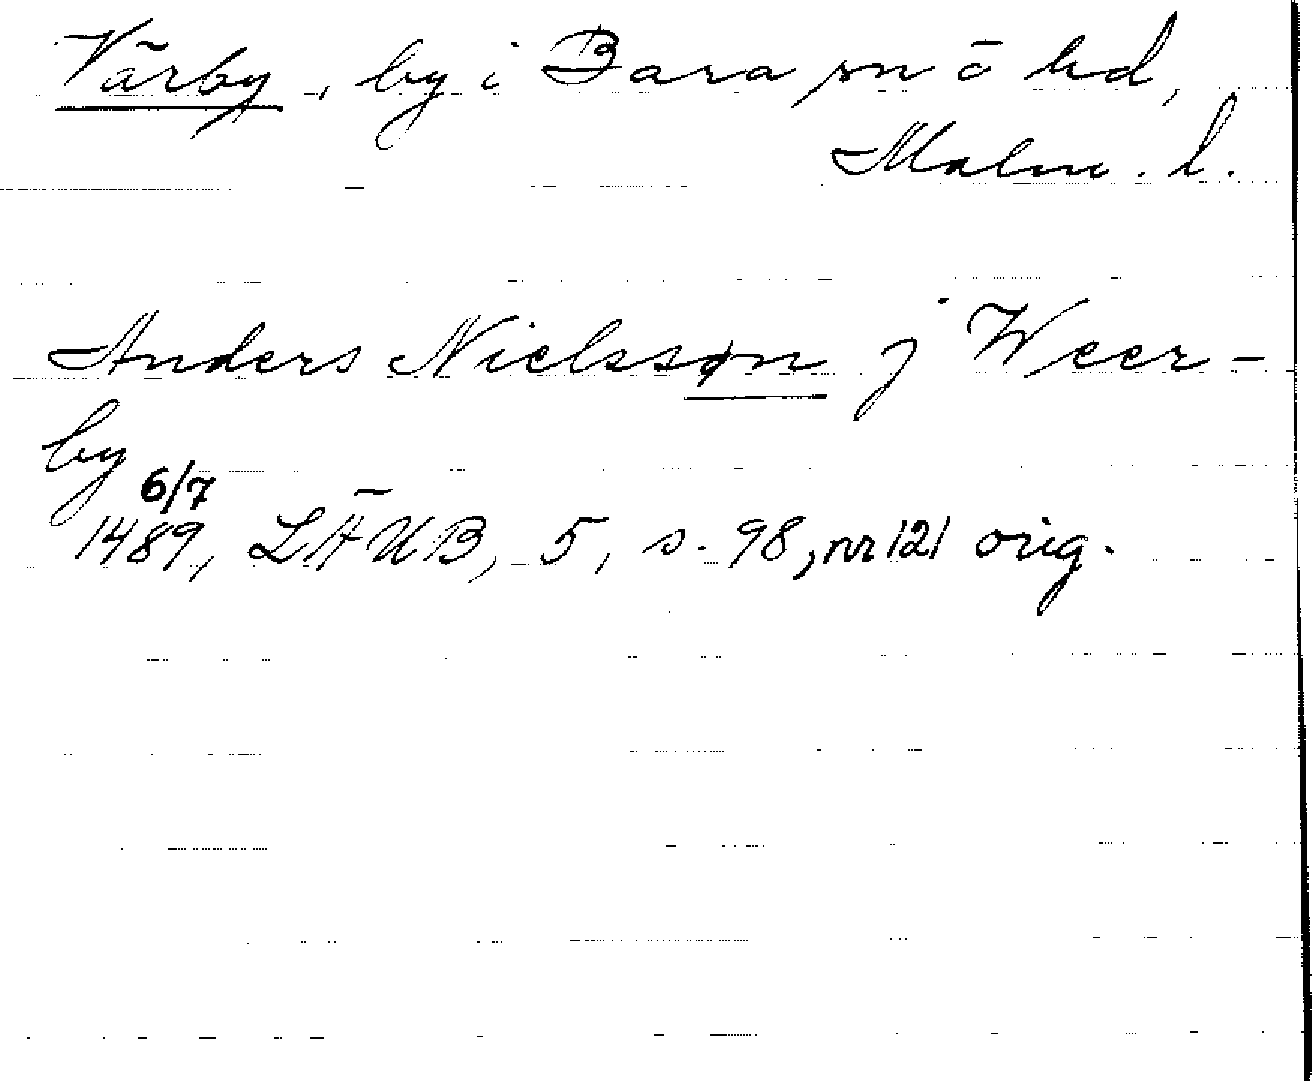 Värby, by i Bara sn ō hd,
Malm. l.
Anders Nielssøn j Weer-
by
6/7
1489, LÄUB, 5, s. 98, nr 121 orig.